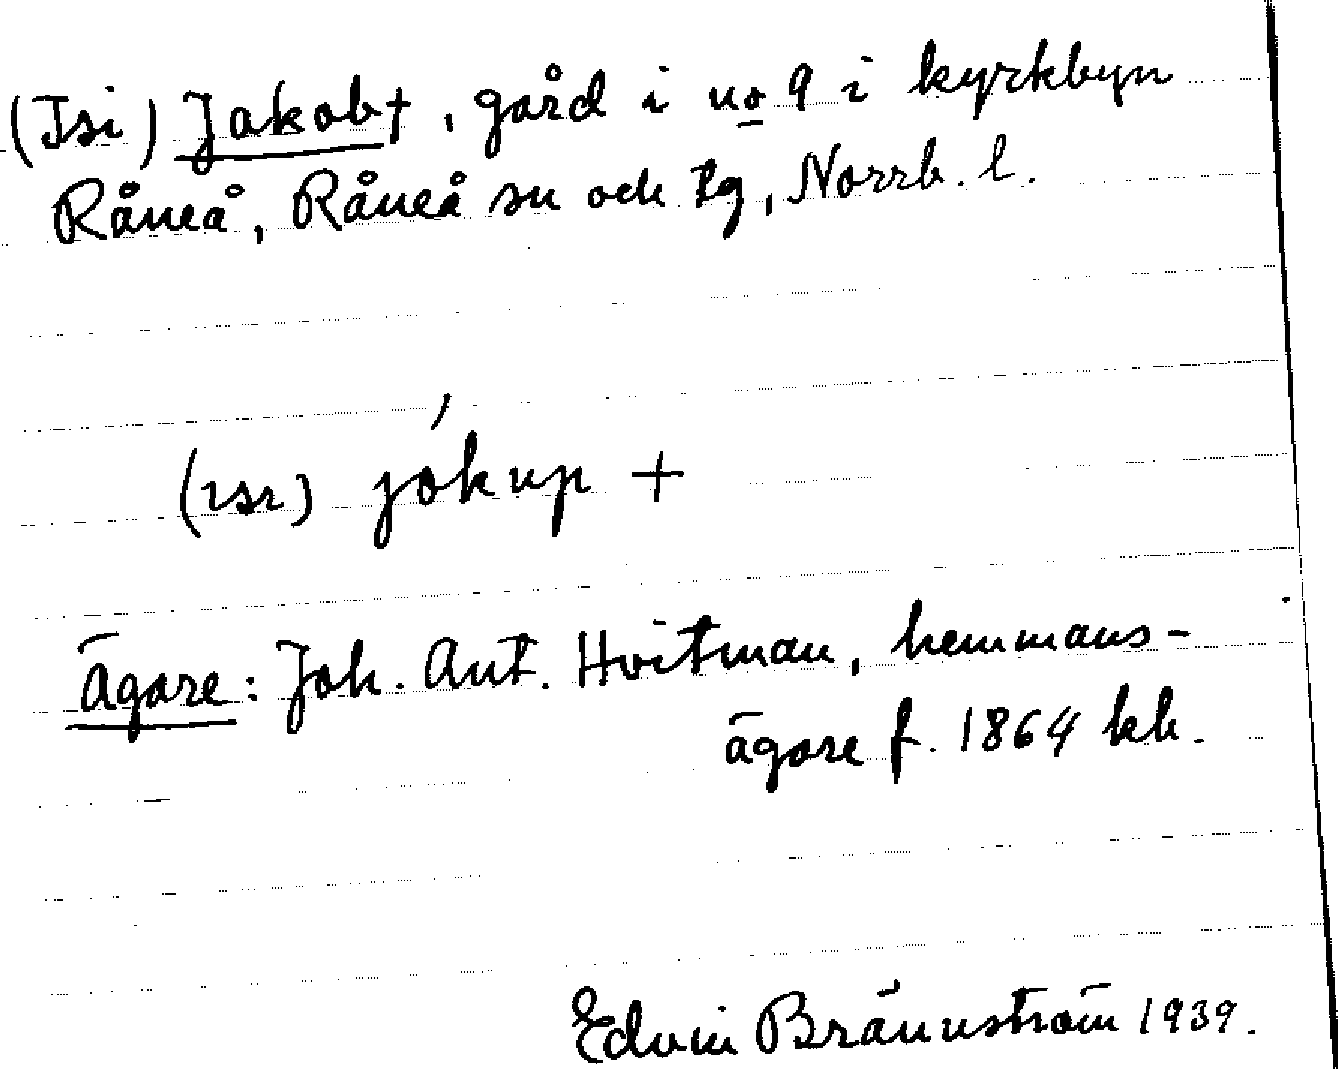 (Isi) Jakob+, gård i no 9 i kyrkbyn
Råneå, Råneå sn och tg, Norrb. l.
(ısı) jókup +
Ägare: Joh. Ant. Hvitman, hemmans-
ägare f. 1864 kb.
Edvin Brännström 1939.